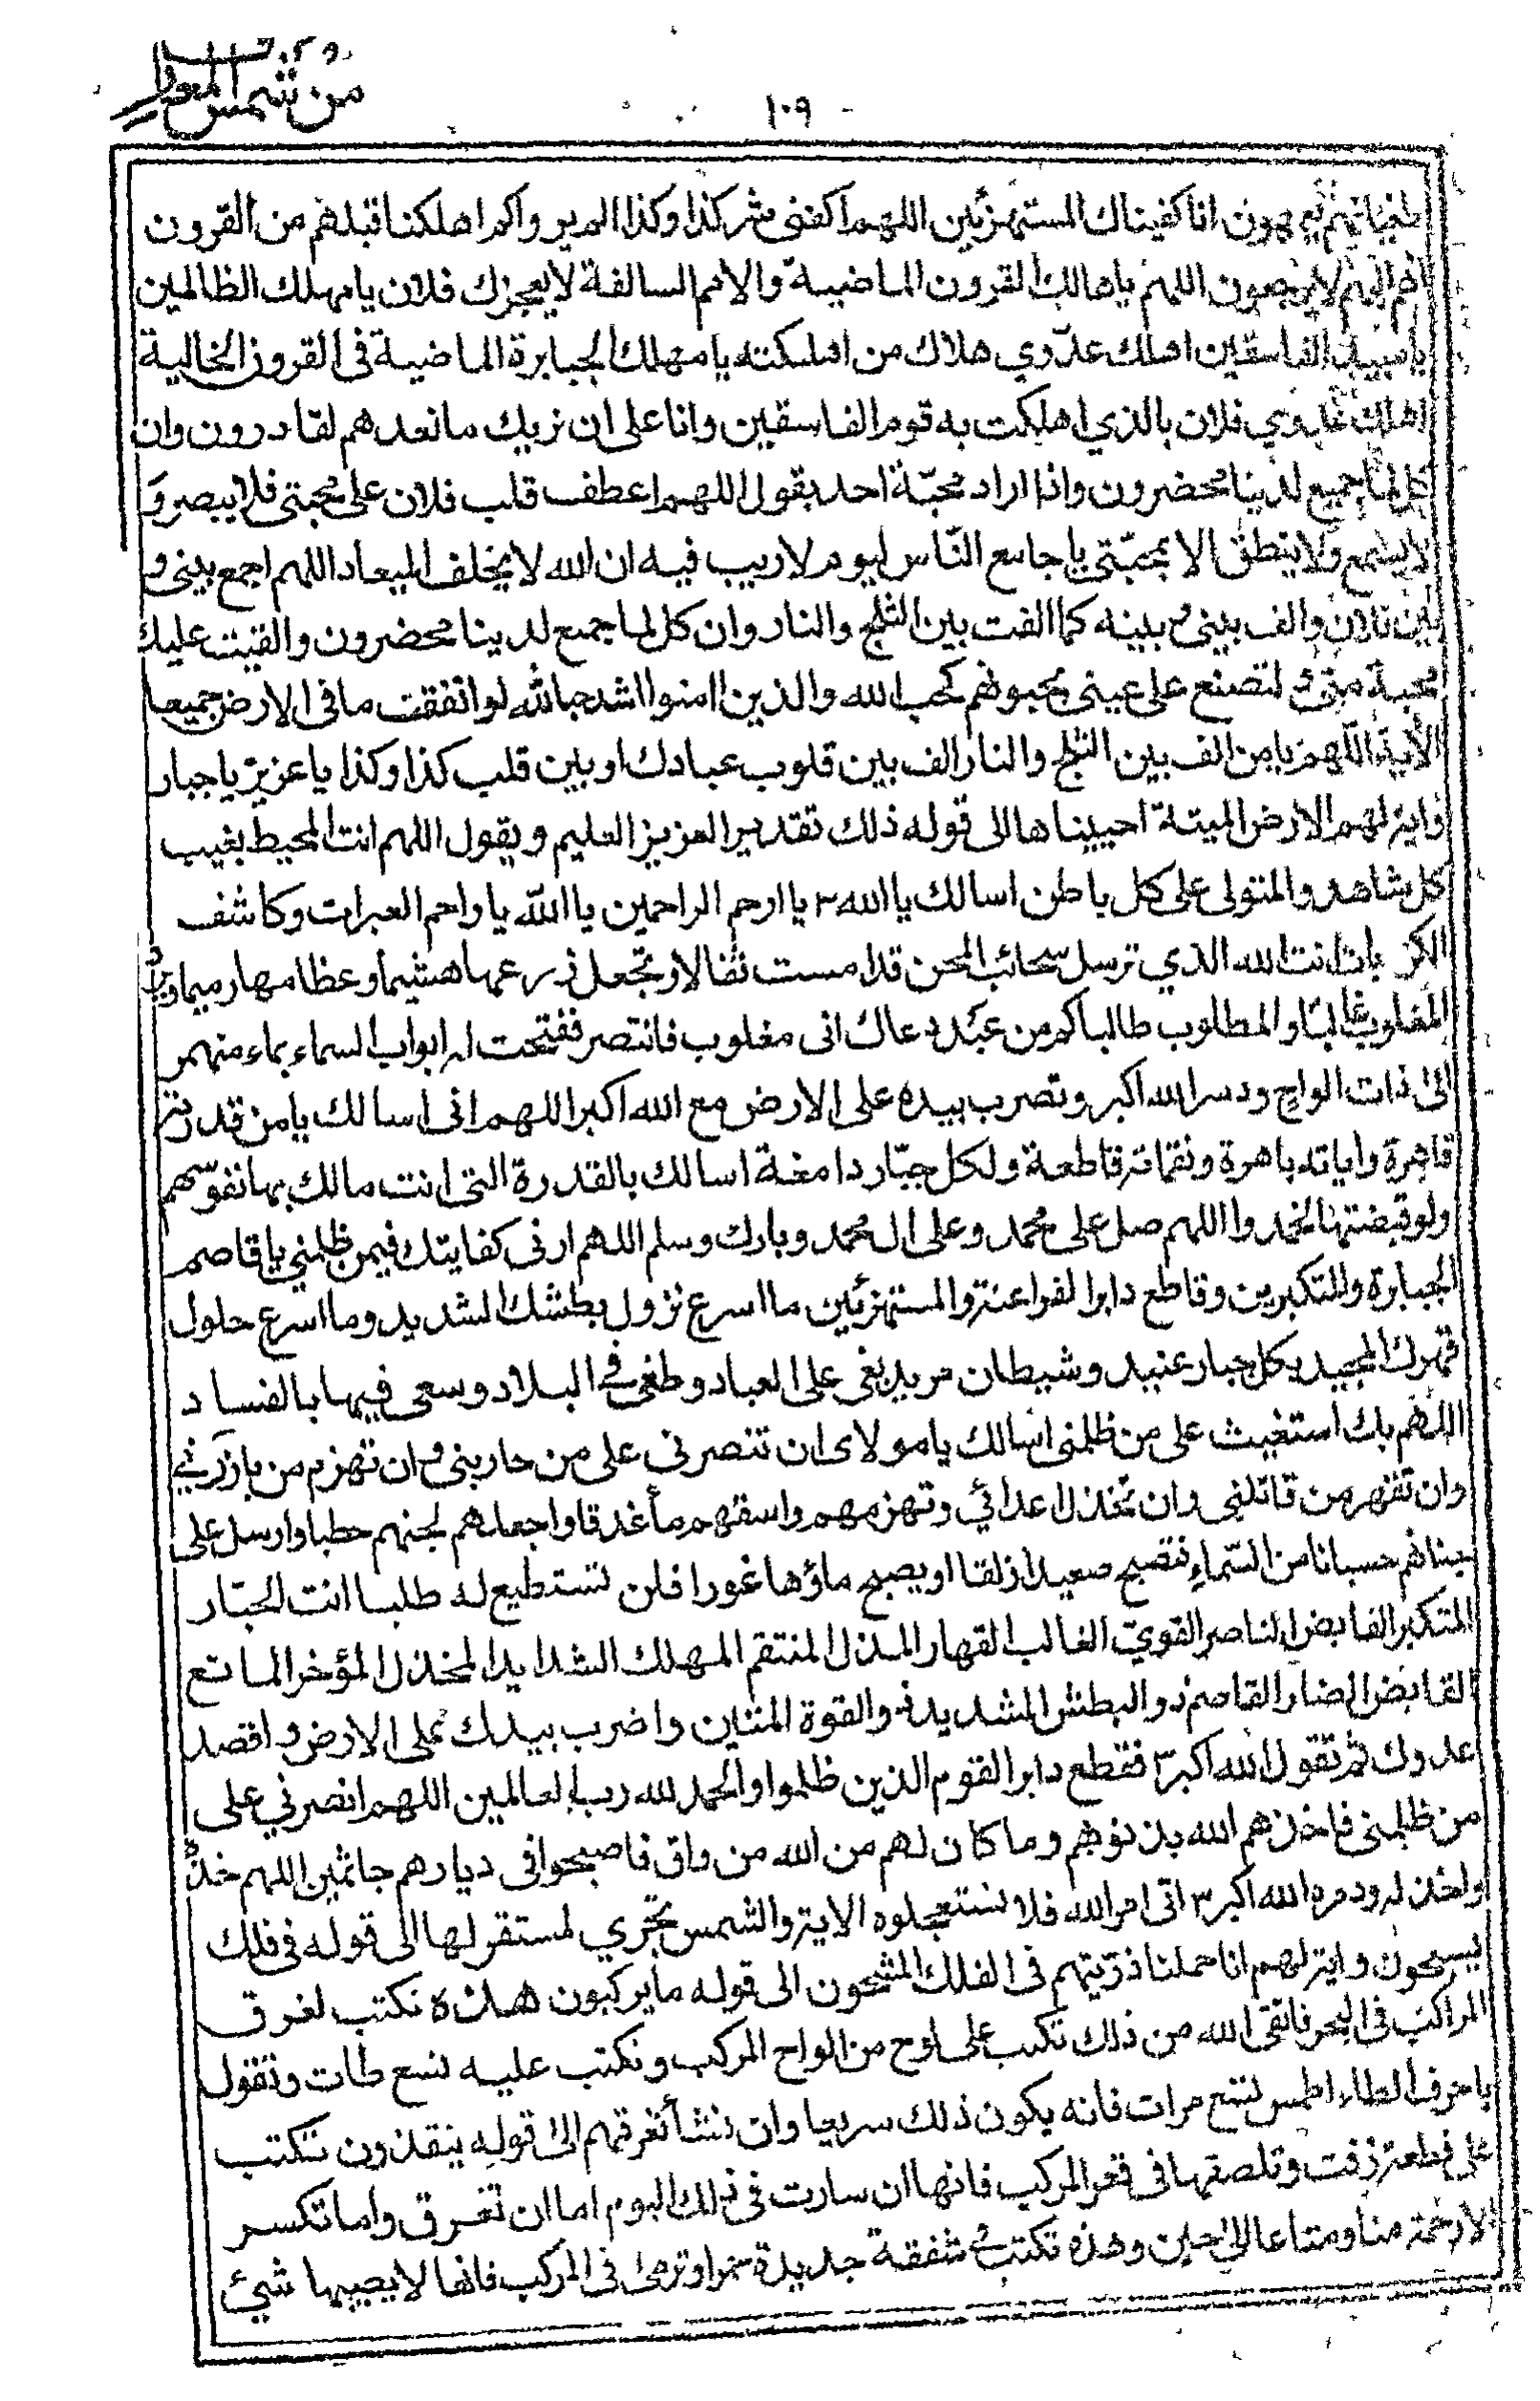 من شمس المعارف
١٠٩
طغيانهم يعمهون انا كفيناك المستهزئين اللهم اكفنى شر كذا وكذا الم يروا كم اهلكنا قبلهم من القرون
انهم اليهم لا يرجعون اللهم يا هالك القرون الماضية والامم السالفة لا يعجزك فلان يا مهلك الظالمين
يا مبيد الفاسقين اهلك عدوي هلاك من اهلكته يا مهلك الجبابرة الماضية فى القرون الخالية
اهلك عدوي فلان بالذي اهلكت به قوم الفاسقين وانا على ان نريك ما نعدهم لقادرون وان
كل لما جميع لدينا محضرون واذا اراد محبّة احد يقول اللهم اعطف قلب فلان على محبتى فلا يبصر وَ
لا يسمع ولا ينطق الا بمحبّتى يا جامع النّاس ليوم لا ريب فيه ان الله لا يخلف الميعاد اللهم اجمع بينى و
بين فلان والف بينى وبينه كما الفت بين الثلج والنار وان كل لما جميع لدينا محضرون والقيت عليك
محبة منى ولتصنع على عينى يحبونهم كحب الله والذين امنوا اشد حبا لله لو انفقت ما فى الارض جميعا
الآية اللّهم يا من الف بين الثلج والنار الف بين قلوب عبادك او بين قلب كذا وكذا يا عزيز يا جبار
واية لهم الارض الميتة احييناها الى قوله ذلك تقدير العزيز العليم ويقول اللهم انت المحيط بغيب
كل شاهد والمتولى على كل باطن اسالك يا الله ٣ يا ارحم الراحمين يا اللّه يا راحم العبرات وكاشف
الكر بات انت الله الذي ترسل سحائب المحن قد امست ثقالا وتجعل زرعها هشيما وعظامها رميما وترد
المغلوب غالبا والمطلوب طالبا كم من عبد دعاك انى مغلوب فانتصر ففتحت له ابواب السماء بماء منهمر
الى ذات الواح ودسر الله اكبر وتضرب بيده على الارض مع الله اكبر اللهم انى اسالك يا من قدرته
قاهرة واياته باهرة ونقماته قاطعة ولكل جبّار دامغة اسالك بالقدرة التى انت مالك بها نفوسهم
ولو قبضتها لخمدوا اللهم صل على محمد وعلى ال محمد وبارك وسلم اللهم ارنى كفايتك فيمن ظلمني يا قاصم
الجبابرة والمتكبرين وقاطع دابر الفراعنة والمستهزئين ما اسرع نزول بطشك الشديد وما اسرع حلول
قهرك المجيد بكل جبار عنيد وشيطان مريد بغى على العباد وطغى في البلاد وسعى فيها بالفساد
اللهم بك استغيث على من ظلمنى اسالك يا مولاى ان تنصرنى على من حاربنى وان تهزم من بارزني
وان تقهر من قاتلنى وان تخذل اعدائي وتهزمهم واسقهم ماء غدقا واجعلهم لجهنم حطبا وارسل على
حسبانا من السّماء فتصبح صعيدا زلقا او يصبح ماؤها غورا فلن تستطيع له طلبا انت الجبّار
المتكبر القابض الناصر القويّ الغالب القهار المذل المنتقم المهلك الشدايد المخذل المؤخر المانع
القابض الضار القاصم ذو البطش الشديد والقوة المتين واضرب بيدك على الارض واقصد
عدوك ثم تقول الله اكبر ٣ فقطع دابر القوم الذين ظلموا والحمد لله رب العالمين اللهم انصرني على
من ظلمنى فاخذهم الله بذنوبهم وما كان لهم من الله من واق فاصبحوا فى ديارهم جاثمين اللهم خذه
واخذله ودمره الله اكبر ٣ اتى امر الله فلا تستعجلوه الاية والشمس تجري لمستقر لها الى قوله فى فلك
يسبحون واية لهم انا حملنا ذريتهم فى الفلك المشحون الى قوله ما يركبون هذه تكتب لغرق
المراكب فى البحر فاتقى الله من ذلك تكتب على لوح من الواح المركب وتكتب عليه تسع طات وتقول
يا حرف الطاء اطمس تسع مرات فانه يكون ذلك سريعا وان نشأ نغرقهم الى قوله ينقذون تكتب
على قطعة زفت وتلصقها فى قعر المركب فانها ان سارت فى ذلك اليوم اما ان تغرق واما تكسر
الا رحمة منا ومتاعا الى حين وهذه تكتب في شقفة جديدة حمرا وترمى فى المركب فانها لا يصيبها شيئ